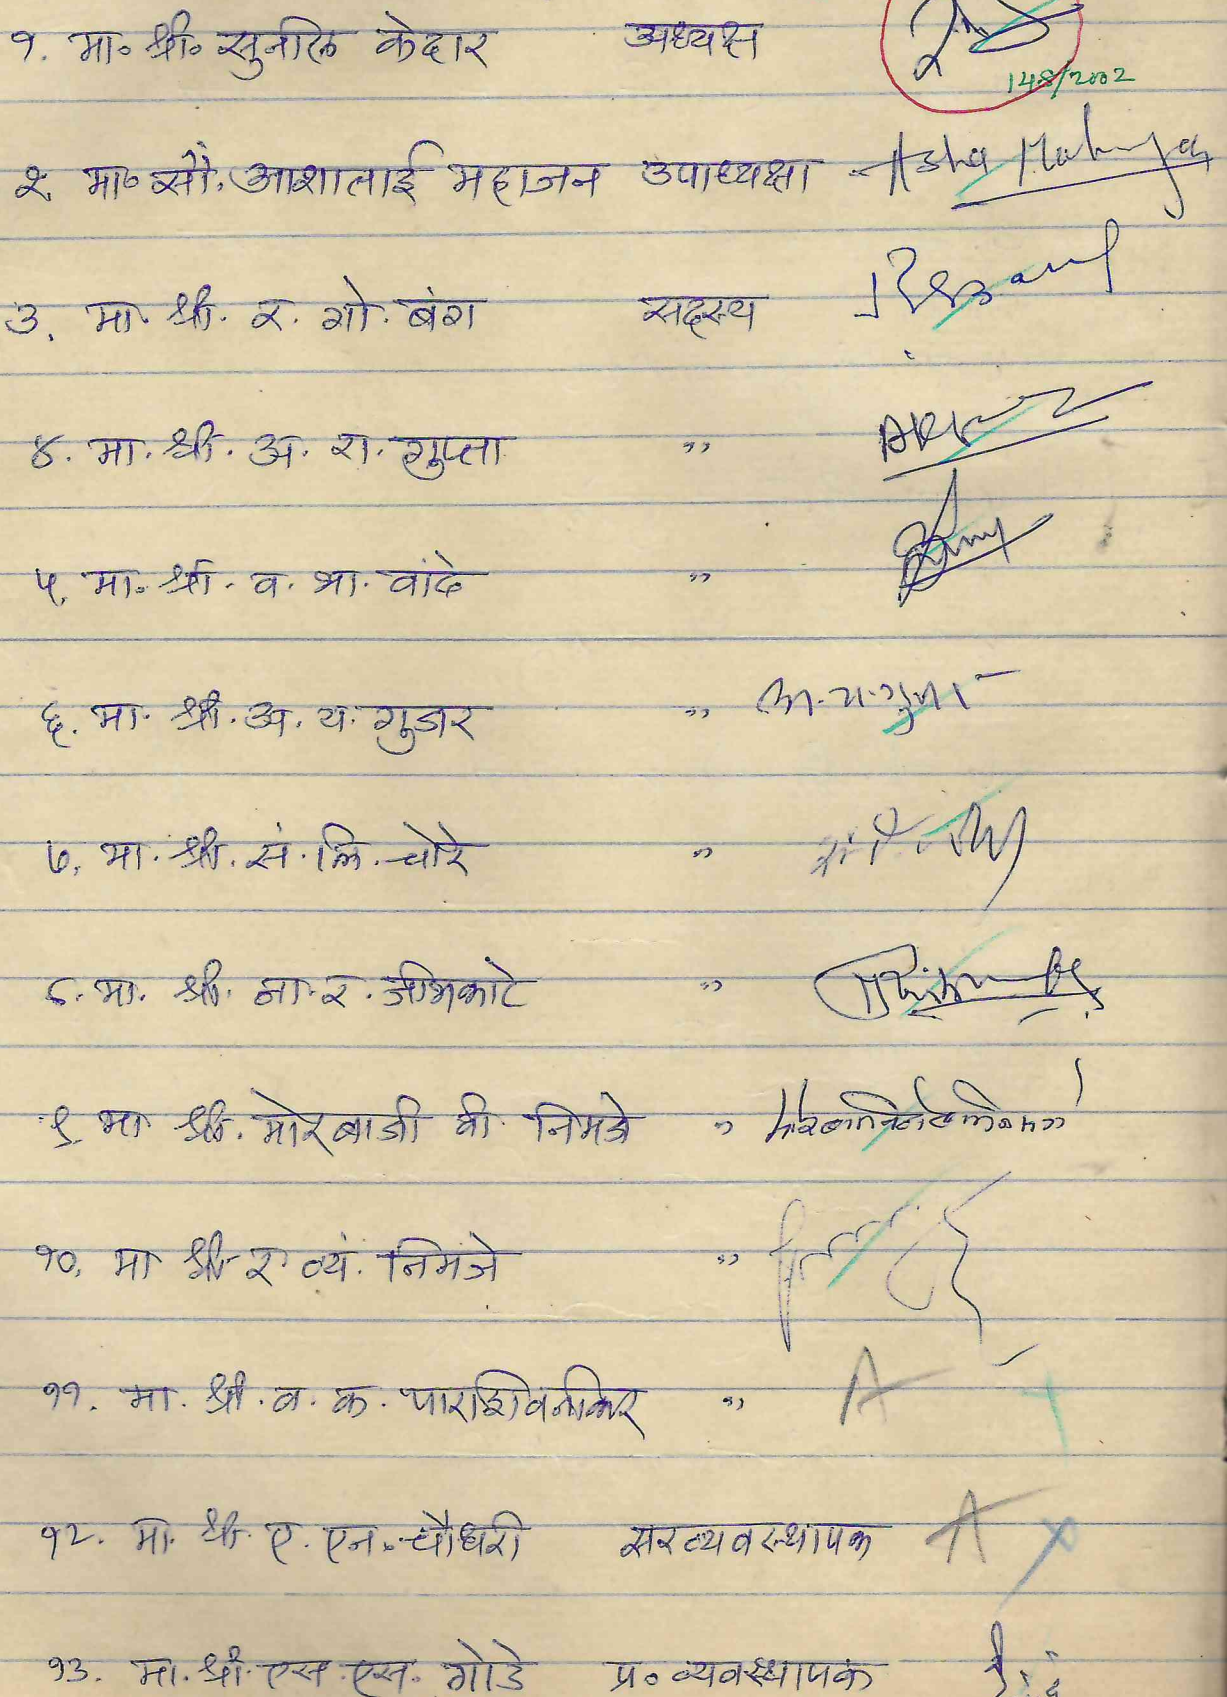 १. मा० श्री० सुनील केदार अध्यक्ष
148/2002
२. मा० सौ. आशाताई महाजन उपाध्यक्षा Asha Mahajan
३. मा. श्री. र. गो. बंग सदस्य
४. मा. श्री. अ. रा. गुप्ता "
५. मा. श्री. व. भा. वांदे "
६. मा. श्री. अ. य. गुजर "
७. मा. श्री. सं. लि. चोरे "
८. मा. श्री. ना. र. जीभकाटे "
९. मा श्री. मोरबाजी वी. निमजे "
१०. मा श्री र व्यं. निमजे "
११. मा. श्री. व. क. पारशिवनीकर " A
१२. मा. श्री. ए. एन. चौधरी सरव्यवस्थापक A
१३. मा. श्री. एस. एस. गोडे प्र० व्यवस्थापक